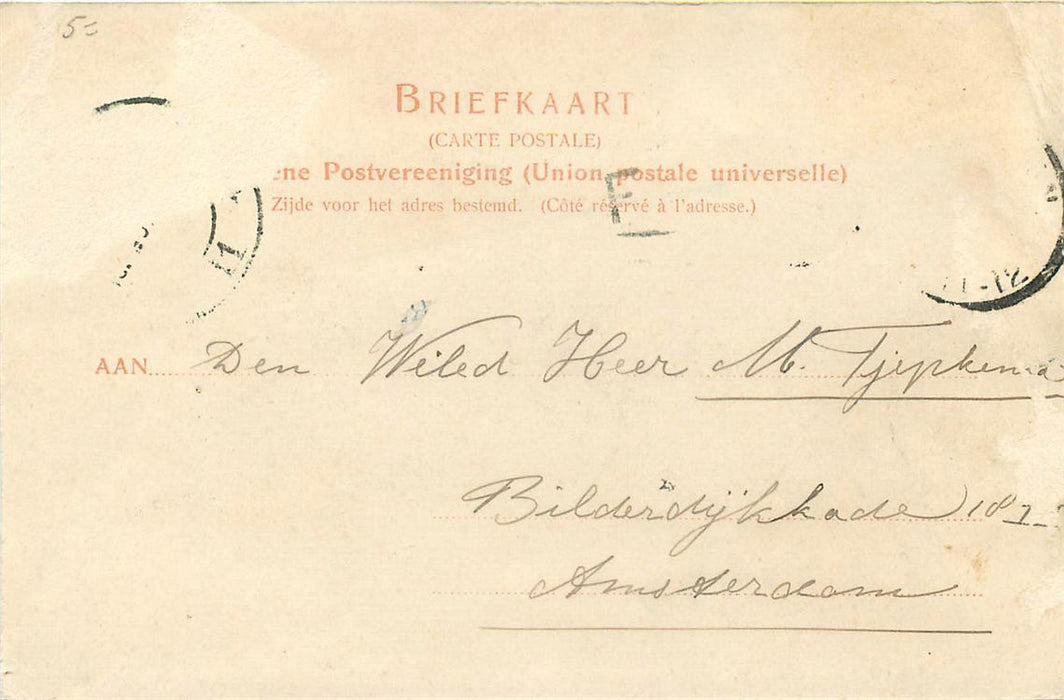 5=
BRIEFKAART
(CARTE POSTALE)
ne Postvereeniging (Union postale universelle)
Zijde voor het adres bestemd. (Côté réservé à l'adresse.)
F
11
11-12
AAN Den Weled Heer M. Tjepkema
Bilderdijkkade
Amsterdam